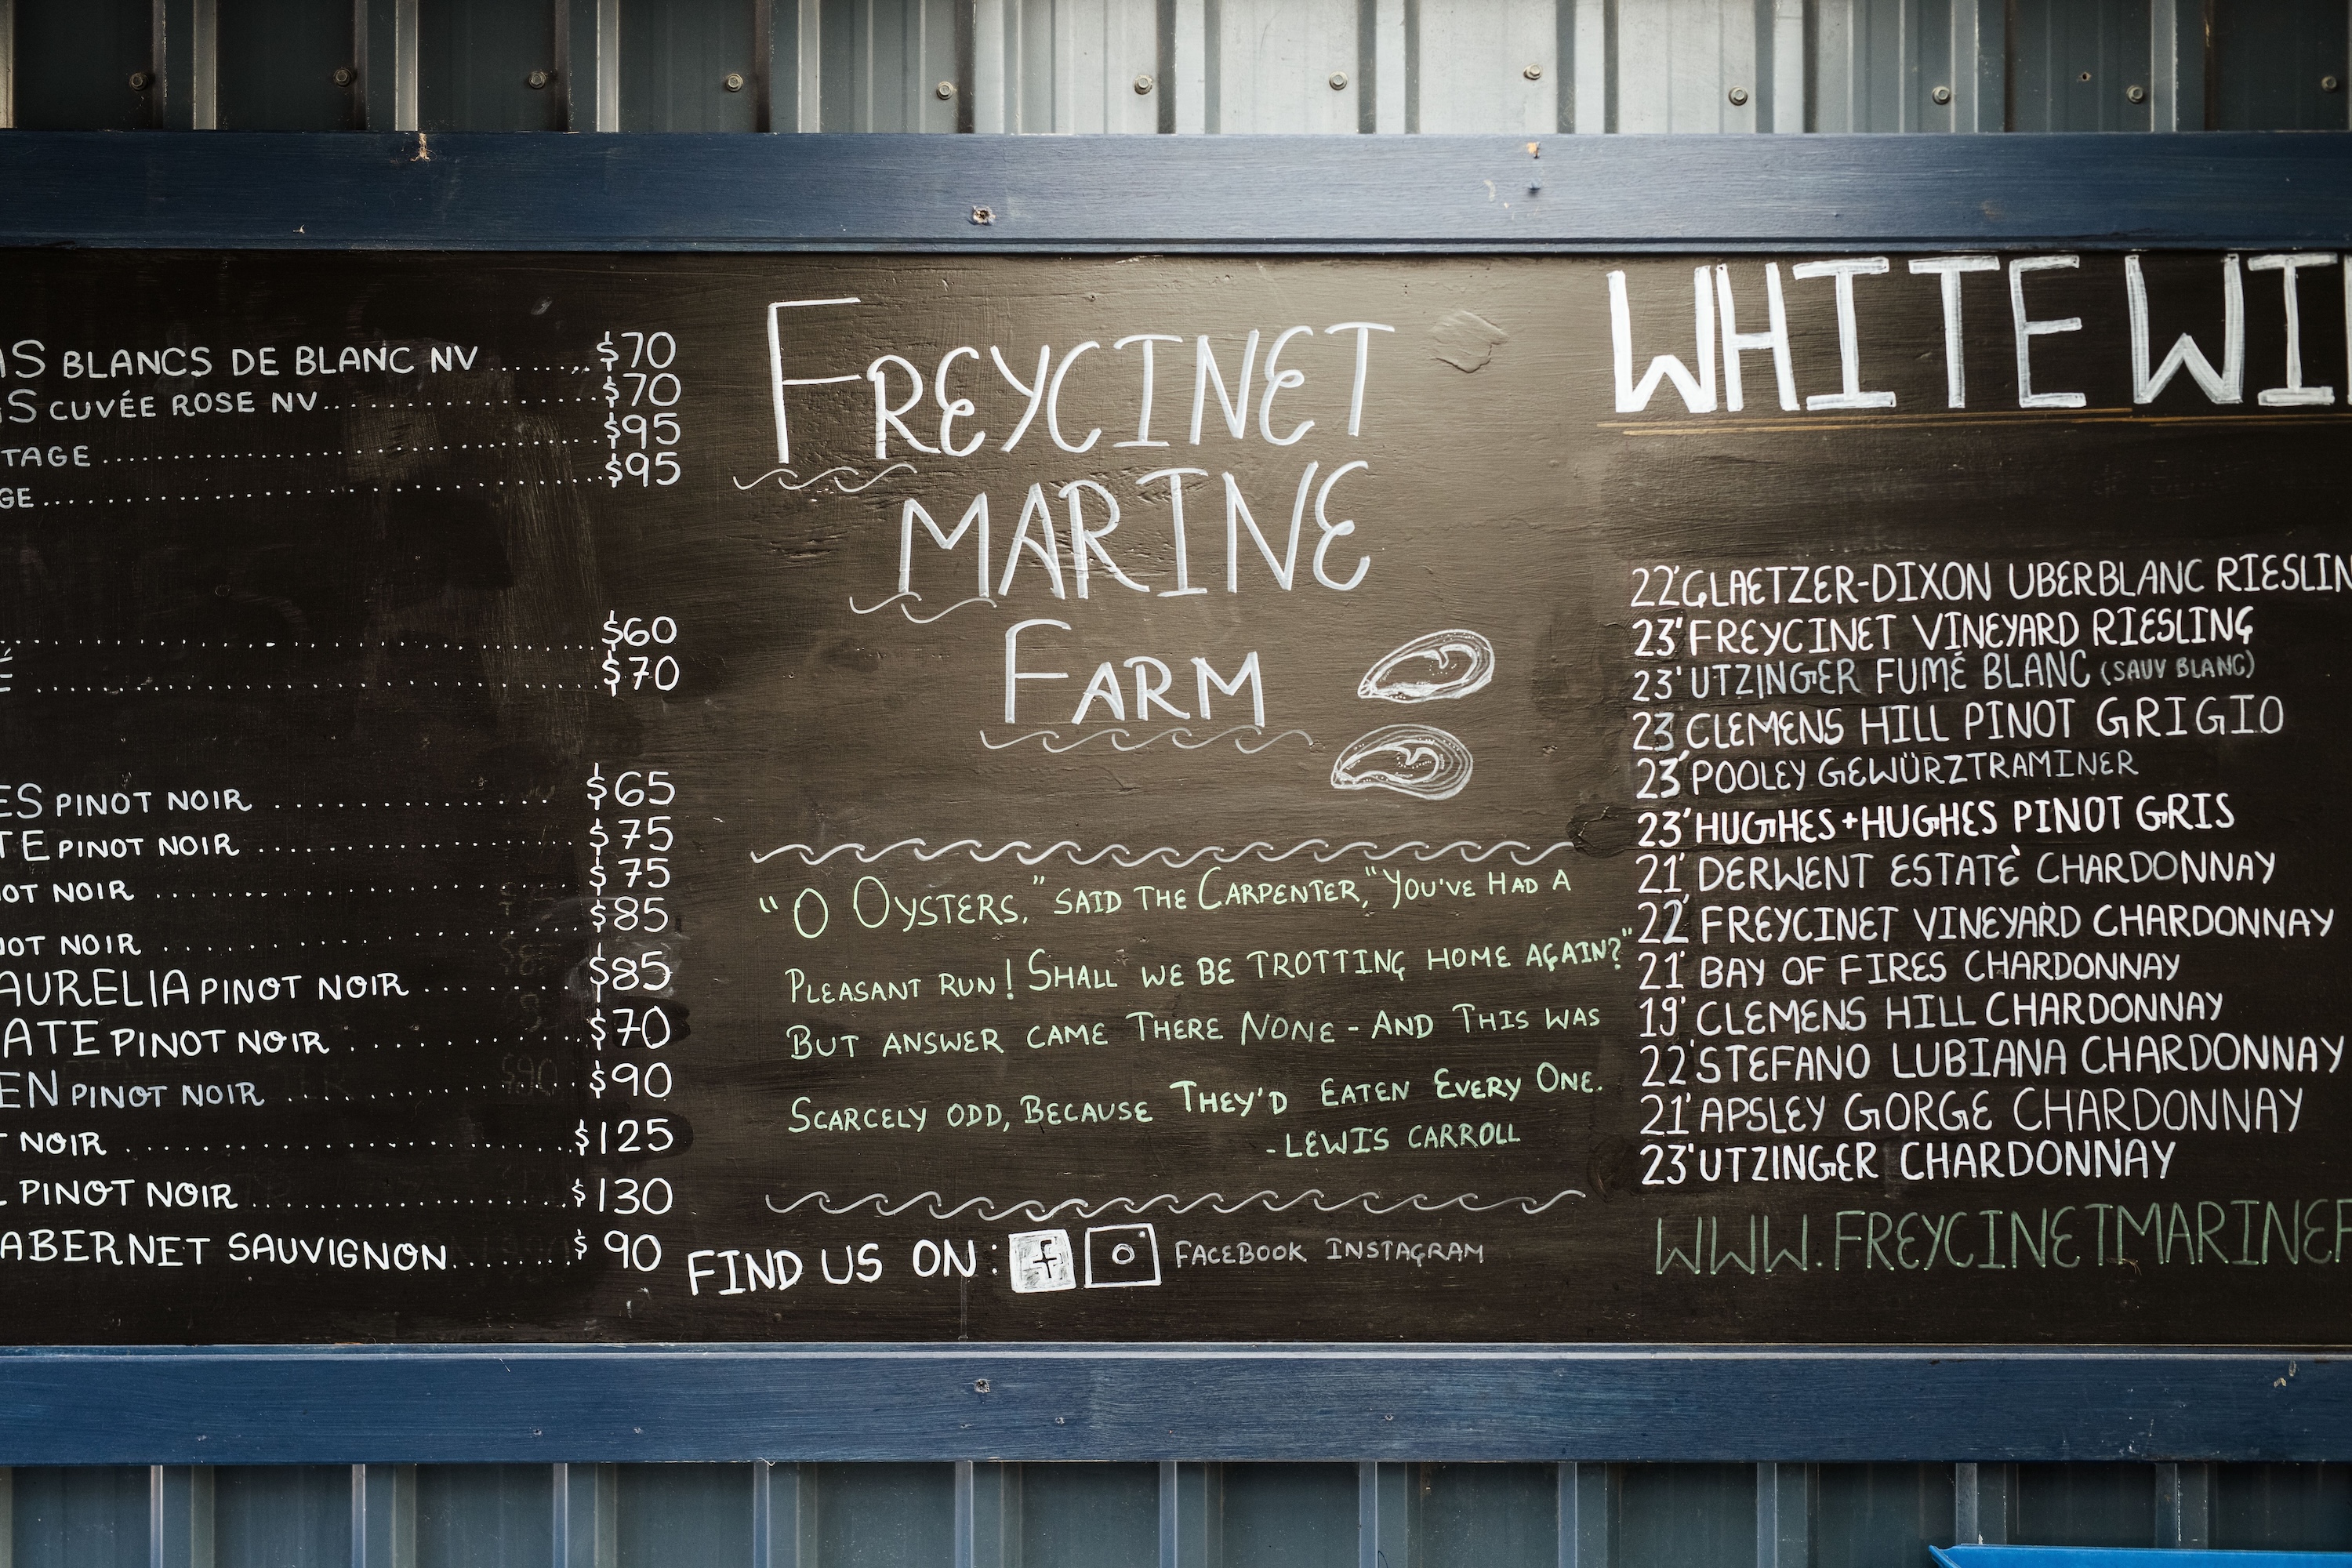 BLANCS DE BLANC NV ........ $70
CUVÉE ROSE NV................. $70
$95
$95
$60
$70
PINOT NOIR ............... $65
PINOT NOIR ............... $75
NOIR ............... $75
NOIR ............... $85
AURELIA PINOT NOIR ........ $85
PINOT NOIR ............ $70
PINOT NOIR ............ $90
NOIR ............... $125
PINOT NOIR ............... $130
SAUVIGNON......... $90
FREYCINET
MARINE
FARM
"O OYSTERS," SAID THE CARPENTER, "YOU'VE HAD A
PLEASANT RUN! SHALL WE BE TROTTING HOME AGAIN?"
BUT ANSWER CAME THERE NONE - AND THIS WAS
SCARCELY ODD, BECAUSE THEY'D EATEN EVERY ONE.
- LEWIS CARROLL
FIND US ON: f FACEBOOK INSTAGRAM
WHITE
22' GLAETZER-DIXON UBERBLANC
23' FREYCINET VINEYARD RIESLING
23' UTZINGER FUMÉ BLANC (SAUV BLANC)
23 CLEMENS HILL PINOT GRIGIO
23' POOLEY GEWÜRZTRAMINER
23' HUGHES + HUGHES PINOT GRIS
21' DERWENT ESTATÈ CHARDONNAY
22' FREYCINET VINEYARD CHARDONNAY
21' BAY OF FIRES CHARDONNAY
19' CLEMENS HILL CHARDONNAY
22' STEFANO LUBIANA CHARDONNAY
21' APSLEY GORGE CHARDONNAY
23' UTZINGER CHARDONNAY
WWW.FREYCINETMARINEF